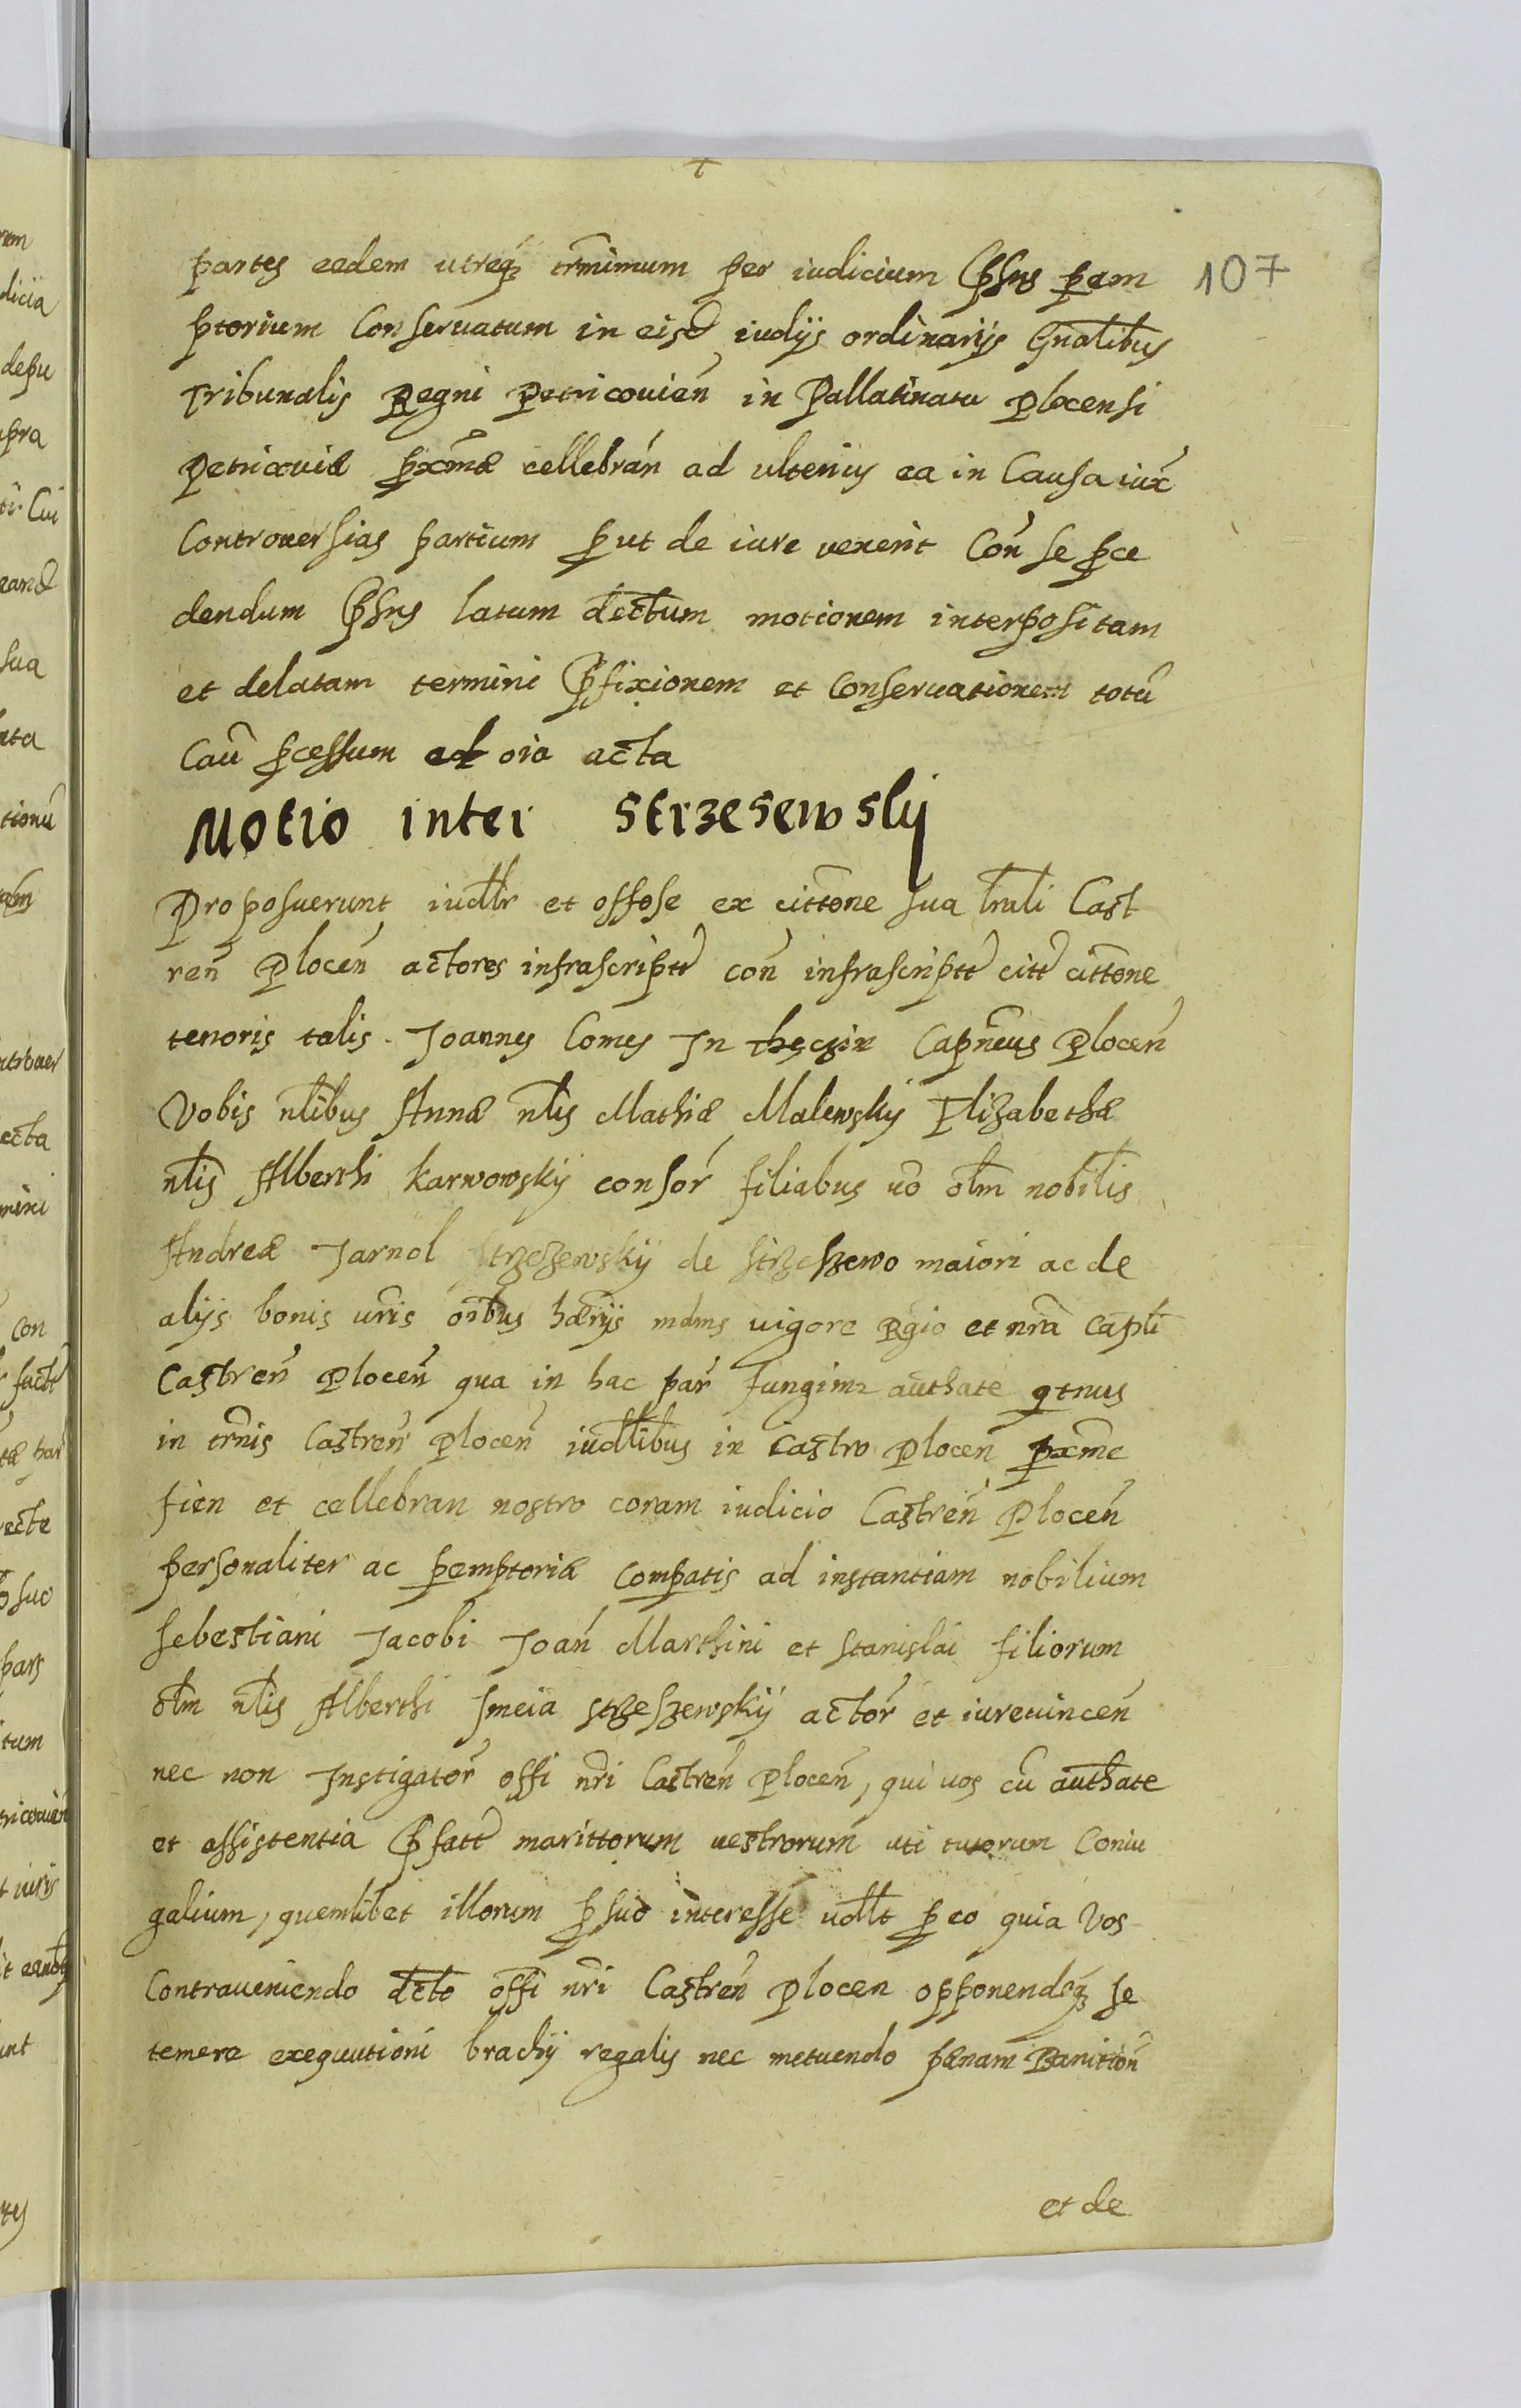 partes eedem utreqz tr̃mimum per iudicium P̃sns perem
ptorium Conseruatum in eisd iudÿs ordinarÿs Gn̄alibus
Tribunalis Regni Petricouien̄ in Pallatinatu Plocensi
Petricouiæ px̄mæ cellebrán ad ulterius ea in Causa iux̃
Controuersias partium put de iure uenerit Coń se pce
dendum P̃sns latum dec̄tum motionem interpositam
et delatam termini P̃fixionem et Conseruationem totū
Caū pcessum ad oīa acta
Motio inter Strzesewsky
Proposuerunt iudłr et offose ex cittōne sua łrali Cast
ren̄ Plocen̄ actores infrascriptt̃ coń infrascriptt̃ citt̃ cittōne
tenoris talis. Joannes Comes In thęczin Capñeus Plocen̄
Vobis nłibus Annæ nłis Mathiæ Malewskÿ Elizabethæ
nłis Alberthi karwowskÿ consor̃ filiabus uō ołm nobilis
Andreæ Jarnol Strzezewskÿ de Strzeszewo maiori ac de
alÿs bonis ur̃is oībus hærÿs mdms uigore Rgio et nr̃a Capłi
Castren̄ Plocen̄ qua in hac par̃ fungimr authate qtnus
in tr̃nis Castren̄ Plocen̄ iudłibus in Castro Plocen̄ pxme
fien et cellebran nostro coram iudicio Castren̄ Plocen̄
personaliter ac pemptoriæ compatis ad instantiam nobilium
Sebestiani Jacobi Joań Marthini et Stanislai filiorum
ołm nłis Alberthi Smeia Strzeszewskÿ actor̃ et iureuincen̄
nec non Instigator̃ offi nr̃i Castren̄ Plocen̄, qui uos cū authate
et assistentia P̃fatt̃ marittorum uestrorum uti tutorum Coniu
galium, quemlibet illorum p suo interesse udłt p eo quia Vos
Contraueniendo dcto offi nr̃i Castren̄ Plocen opponendoqz se
temere exequutioni brachÿ regalis nec metuendo pænam Banition̄
et de
107